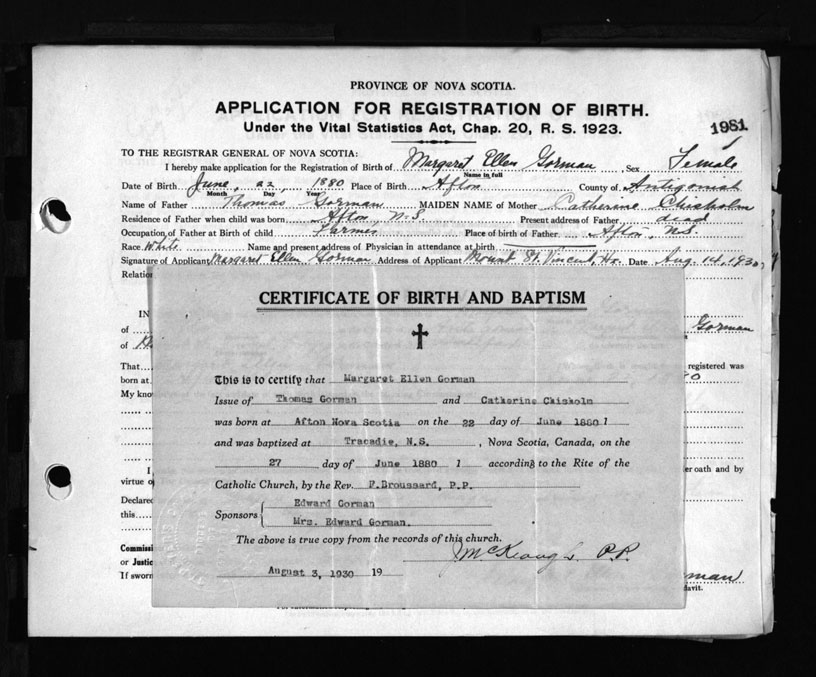 PROVINCE OF NOVA SCOTIA.
APPLICATION FOR REGISTRATION OF BIRTH.
Under the Vital Statistics Act, Chap. 20, R. S. 1923.
1981
TO THE REGISTRAR GENERAL OF NOVA SCOTIA:
I hereby make application for the Registration of Birth of Margaret Ellen Gorman Sex Female
Name in full
Date of Birth June, 22, 1880 Place of Birth Afton County of Antigonish
Month Day Year
Name of Father Thomas Gorman MAIDEN NAME of Mother Catherine Chisholm
Residence of Father when child was born Afton, N.S. Present address of Father dead
Occupation of Father at Birth of child Farmer Place of birth of Father Afton, N.S.
Race White Name and present address of Physician in attendance at birth
Signature of Applicant Margaret Ellen Gorman Address of Applicant Mount St. Vincent, Hx. Date Aug. 14, 1930,
Relation
CERTIFICATE OF BIRTH AND BAPTISM
IN
of Gorman
of
This is to certify that Margaret Ellen Gorman
That registered was
Issue of Thomas Gorman and Catherine Chisholm
born at
My know
was born at Afton Nova Scotia on the 22 day of June 1880 1
and was baptized at Tracadie, N.S. , Nova Scotia, Canada, on the
27 day of June 1880 1 according to the Rite of the
I er oath and by
virtue o
Catholic Church, by the Rev. F.Broussard, P.P.
Declared
Edward Gorman
this
Sponsors
Mrs. Edward Gorman.
The above is true copy from the records of this church.
Commissi
or Justic
P.P.
August 3, 1930 19
If sworn rman
davit.